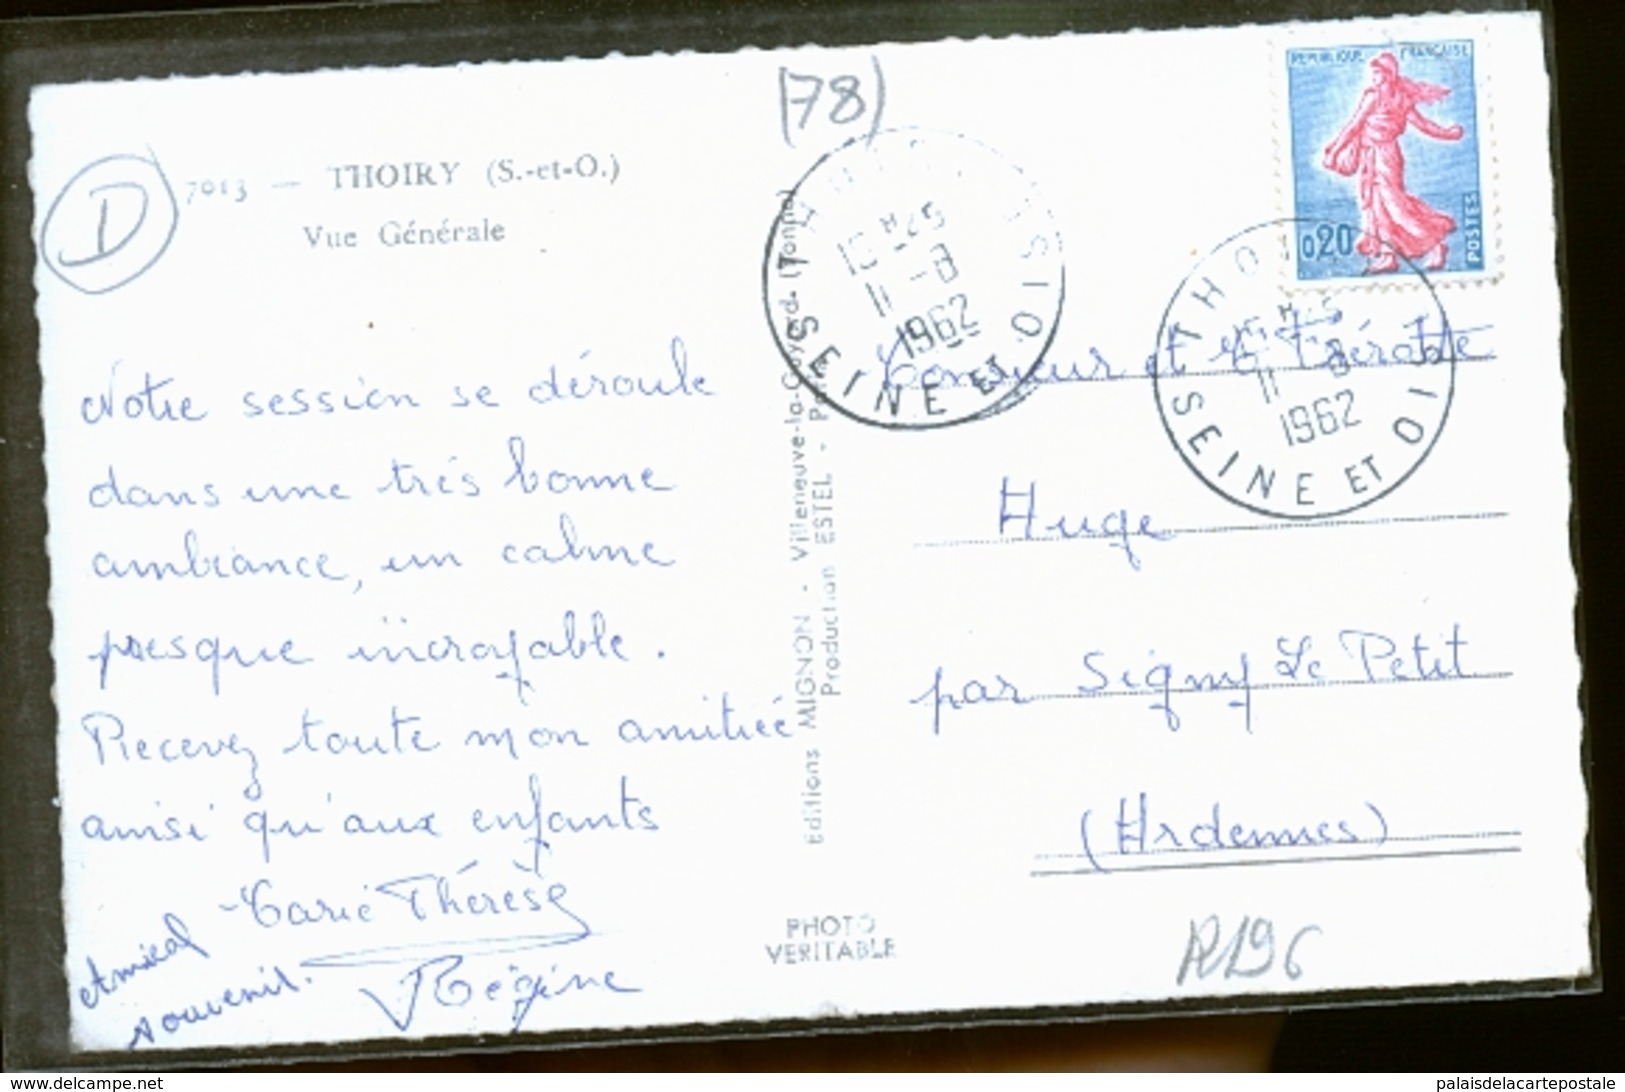 (78)
REPUBLIQUE FRANCAISE
0,20
POSTES
D
7013 — THOIRY (S.-et-O.)
Vue Générale
THOIRY
11 -8
1962
SEINE ET OISE
THOIRY
11 -8
1962
SEINE ET OISE
Notre session se déroule
dans une très bonne
ambiance, un calme
presque incroyable.
Recevez toute mon amitié
ainsi qu'aux enfants
Marie Thérèse
Amical
souvenir.
Régine
Editions MIGNON - Villeneuve-la-Guyard- (Yonne)
Production ESTEL -
PHOTO
VERITABLE
Monsieur et
Huge
par Signy Le Petit
(Ardennes)
R196
www.delcampe.net
palaisdelacartepostale